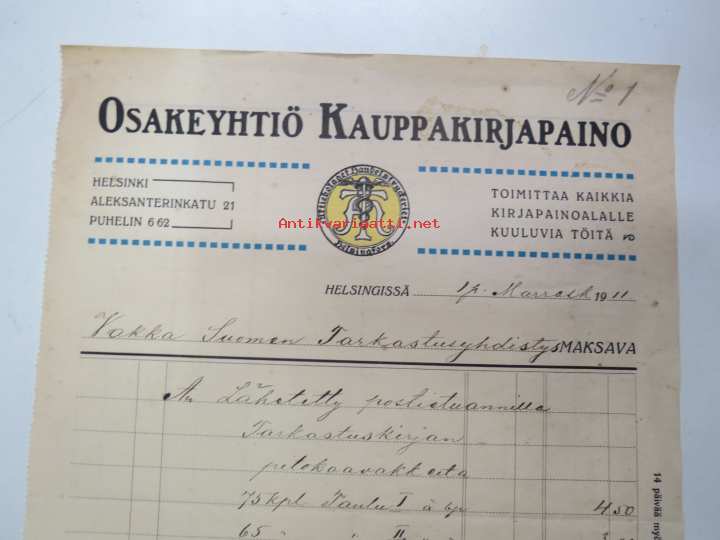 No 1
OSAKEYHTIÖ KAUPPAKIRJAPAINO
HELSINKI
ALEKSANTERINKATU 21
PUHELIN 6 62
Aktiebolaget Handelstryckeriet
Helsingfors
TOIMITTAA KAIKKIA
KIRJAPAINOALALLE
KUULUVIA TÖITÄ
Antikvariaatti.net
HELSINGISSÄ 1 p. Marrask 1911
Vakka Suomen Tarkastusyhdistys MAKSAVA
Lähetetty postietuannilla
Tarkastuskirjan
pitokaavakkeita
75 kpl. Taulu I à 6p 4.50
65 " " II
14 päivää